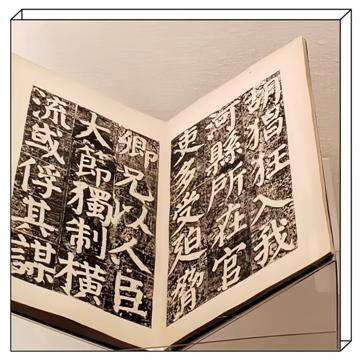 胡猖狂入我
河縣所在官
吏多受迫脅
卿兄以人臣
大節獨制橫
流或俘其謀